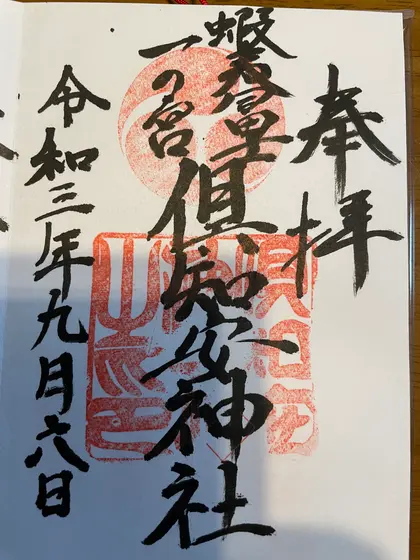 奉拝
蝦夷富士
一の宮
倶知安神社
令和三年九月六日